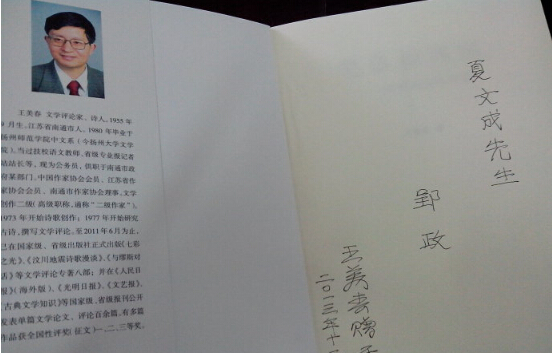 王美春 文学评论家、诗人。1955年
9月生,江苏省南通市人。1980年毕业于
扬州师范学院中文系(今扬州大学文学
院)。当过技校语文教师、省级专业报记者
站站长等,现为公务员,供职于南通市政
府某部门。中国作家协会会员、江苏省作
家协会会员、南通市作家协会理事,文学
创作二级(高级职称,通称“二级作家”)。
1973年开始诗歌创作;1977年开始研究
古诗,撰写文学评论。至2011年6月为止,
已在国家级、省级出版社正式出版《七彩
之光》、《汶川地震诗歌漫谈》、《与缪斯对
话》等文学评论专著八部;并在《人民日
报》(海外版)、《光明日报》、《文艺报》、
《古典文学知识》等国家级、省级报刊公开
发表单篇文学论文、评论百余篇,有多篇
作品获全国性评奖(征文)一、二、三等奖。
夏文成先生
郢政
王美春赠于
二〇一三年十一